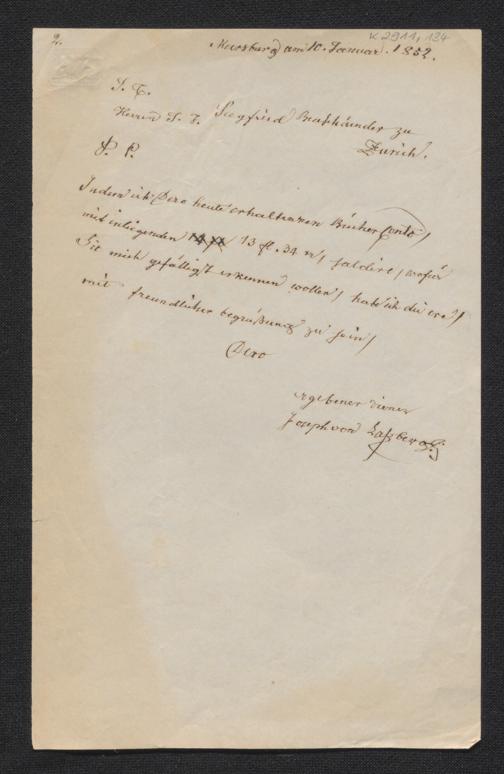 K 2911, 134
2.
Meersburg am 10. Januar. 1852.
S. T.
Herrn S. T. Siegfried Buchhändler zu
Zürich.
P. P.
Indem ich Dero heute erhaltenen Bücher Conto,
mit inliegenden 13 fl. 34 x, saldire, wofür
Sie mich gefälligst erkennen wollen, habe ich die ere,
mit freundlicher begrüßung zu sein,
Dero
ergebener diener
Joseph von Laßberg.